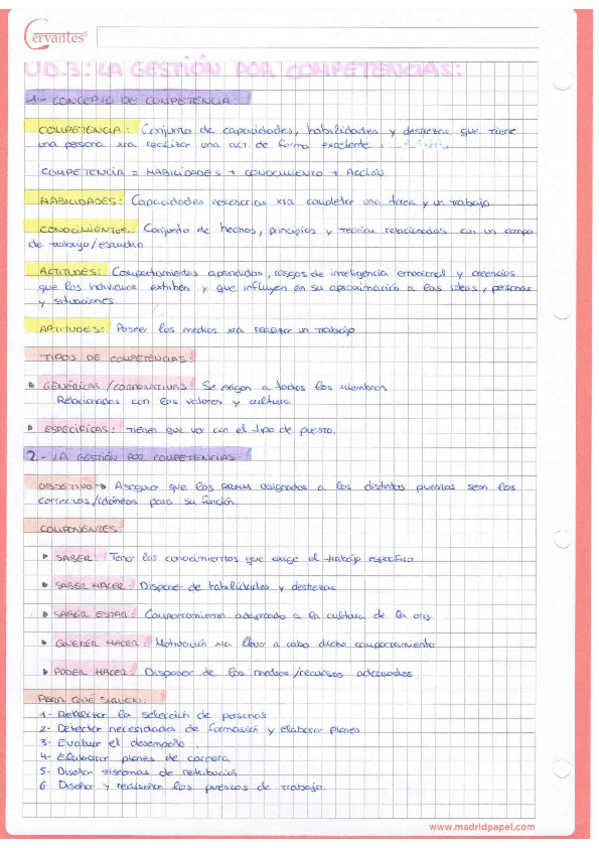 Cervantes
UD.3: LA GESTIÓN POR COMPETENCIAS:
1.- CONCEPTO DE COMPETENCIA:
COMPETENCIA: Conjunto de capacidades, habilidades y destrezas que tiene
una persona xra realizar una act. de forma excelente.
COMPETENCIA = HABILIDADES + CONOCIMIENTO + ACCIÓN
HABILIDADES: Capacidades necesarias xra completar una tarea y un trabajo
CONOCIMIENTOS: Conjunto de hechos, principios y teorías relacionadas con un campo
de trabajo/estudio
ACTITUDES: Comportamientos aprendidos, rasgos de inteligencia emocional y creencias
que los individuos exhiben y que influyen en su aproximación a las ideas, personas
y situaciones.
APTITUDES: Poseer los medios xra realizar un trabajo
TIPOS DE COMPETENCIAS:
GENÉRICAS/CORPORATIVAS: Se exigen a todos los miembros
Relacionadas con los valores y cultura
ESPECÍFICAS: Tienen que ver con el tipo de puesto.
2.- LA GESTIÓN POR COMPETENCIAS
OBJETIVO → Asegurar que los RRHH asignados a los distintos puestos sean los
correctos/idóneos para su función.
COMPONENTES
SABER: Tener los conocimientos que exige el trabajo específico
SABER HACER: Disponer de habilidades y destrezas
SABER ESTAR: Comportamiento adaptado a la cultura de la org.
QUERER HACER: Motivación xra llevar a cabo dicho comportamiento
PODER HACER: Disponer de los medios/recursos adecuados
PARA QUÉ SIRVEN:
1- la selección de personas
2- Detectar necesidades de formación y elaborar planes
3- Evaluar el desempeño
4- Elaborar planes de carrera
5- Diseñar sistemas de retribución
6 Diseñar y rediseñar los puestos de trabajo.
www.madridpapel.com